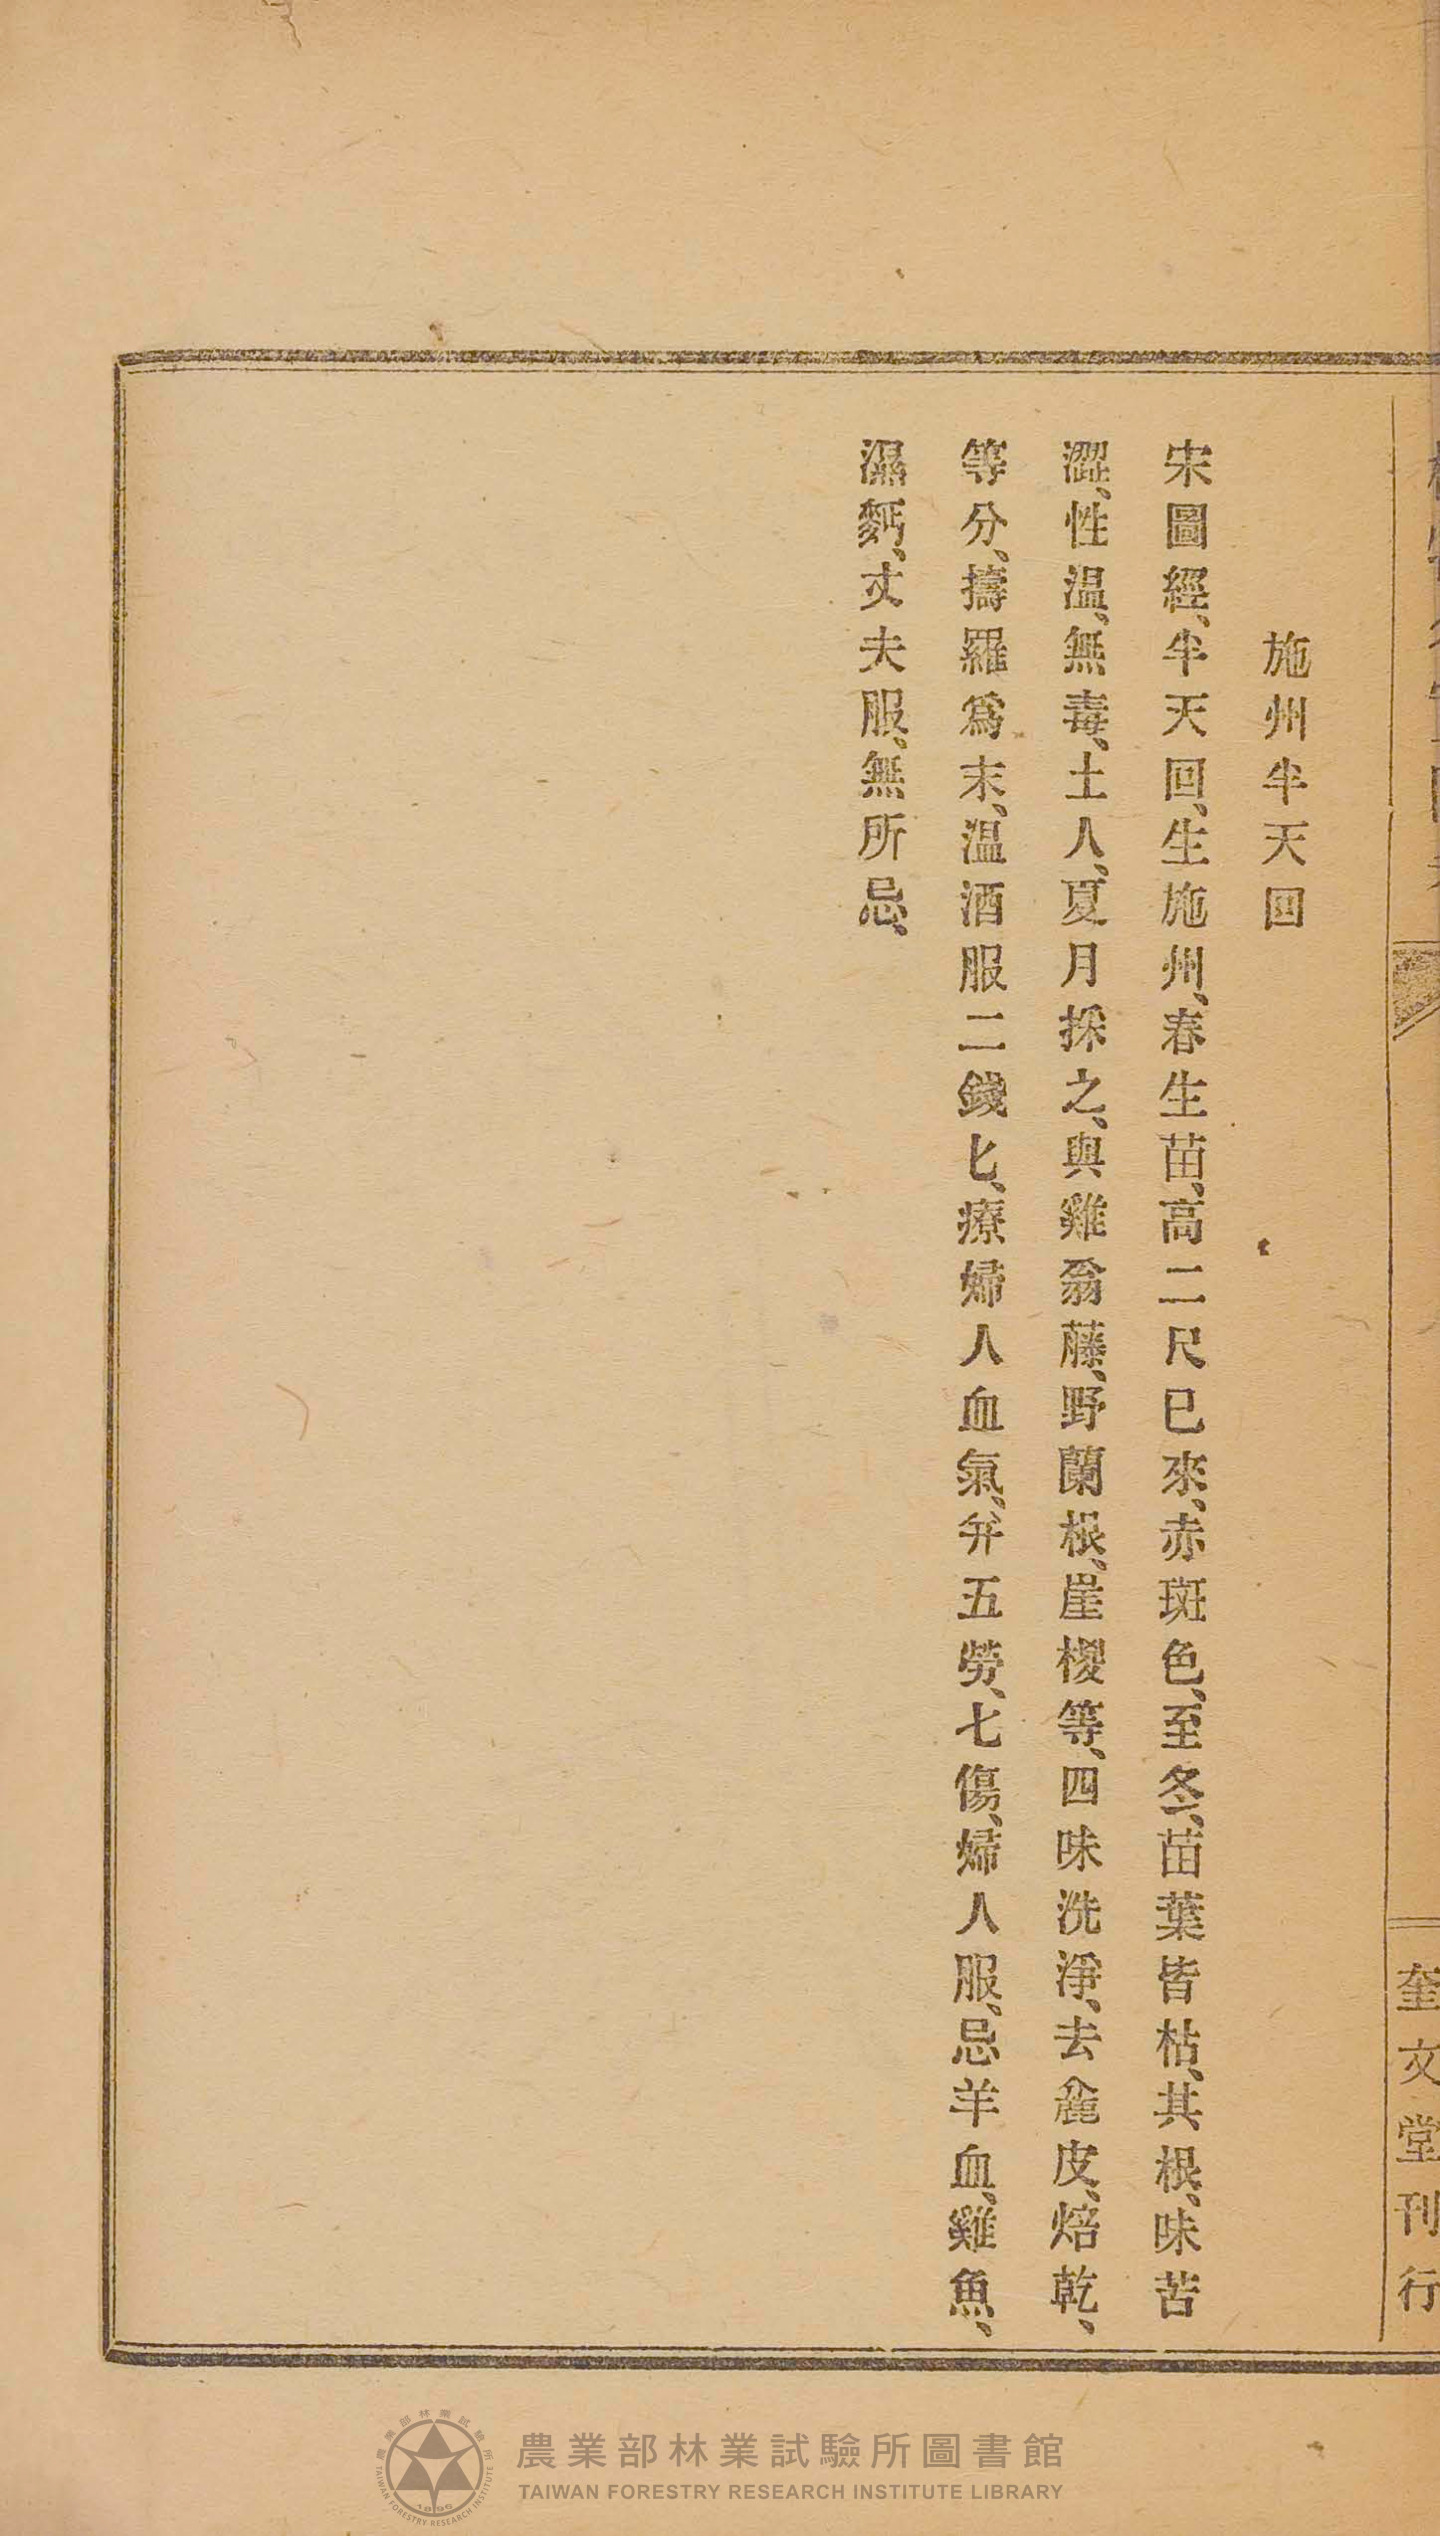 奎文堂刊行
施州半天回
宋圖經、半天回、生施州、春生苗、高二尺已來、赤斑色、至冬、苗葉皆枯、其根、味苦
澀、性温、無毒、土人、夏月採之、與雞翁藤、野蘭根、崖㯶等、四味洗淨、去麄皮、焙乾、
等分、擣羅爲末、温酒服二錢匕、療婦人血氣、并五勞、七傷、婦人服、忌羊血、雞魚、
濕麪、丈夫服、無所忌、
農業部林業試驗所圖書館
TAIWAN FORESTRY RESEARCH INSTITUTE LIBRARY
農業部林業試驗所
TAIWAN FORESTRY RESEARCH INSTITUTE
1896